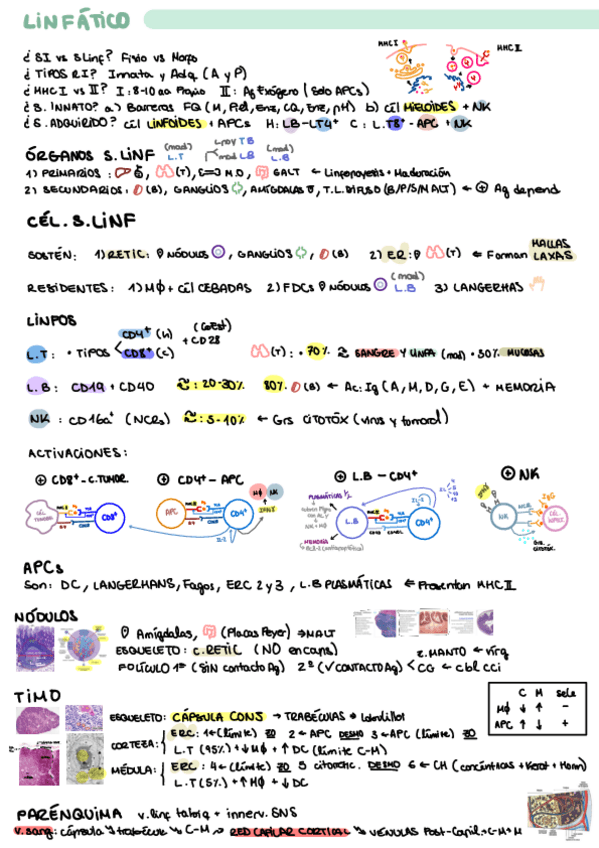 LINFÁTICO
¿SI vs SLinf? Fisio vs Morfo
¿TIPOS RI? Innata y Adq (A y P)
¿MHC I vs II? I: 8-10 aa Propio II: Ag Exógeno (Solo APCs)
MHC I
MHC II
¿S. INNATO? a) Barreras FQ (M, Piel, Enz, CQ, Enz, pH) b) Cél MIELOIDES + NK
¿S. ADQUIRIDO? Cél LINFOIDES + APCs H: LB-LT4+ C: L.T8+ - APC + NK
ÓRGANOS S. LINF
(mad) L.T
(mad) L.B
1) PRIMARIOS: (T), M.O, GALT ← Linfopoyesis + Maduración
2) SECUNDARIOS: (B), GANGLIOS, AMÍGDALAS, T.L.DIFUSO (B/P/S/MALT) ← ⊕ Ag depend
CÉL. S. LINF
SOSTÉN: 1) RETIC: NÓDULOS, GANGLIOS, (B) 2) ER: (T) ← Forman MALLAS LAXAS
RESIDENTES: 1) MΦ + Cél CEBADAS 2) FDCs NÓDULOS (mad) L.B 3) LANGERHAS
LINFOS
L.T: • TIPOS CD4+ (H) CD8+ (C) (CoEst) + CD28 (T): • 70% SANGRE Y LINFA (mad) • 30% MUCOSAS
L.B: CD19 + CD40 : 20-30% 80% (B) ← Ac: Ig (A, M, D, G, E) + MEMORIA
NK: CD16a+ (NCRs) : 5-10% ← Grs CITOTÓX (virus y tumoral)
ACTIVACIONES:
⊕ CD8+ - C.TUMOR.
⊕ CD4+ - APC
⊕ L.B - CD4+
⊕ NK
CÉL TUMORAL
CD8+
APC
CD4+
MΦ
NK
PLASMÁTICAS
MEMORIA
L.B
CD4+
NK
APCs
Son: DC, LANGERHANS, Fagos, ERC 2 y 3, L.B PLASMÁTICAS ← Presentan MHC II
NÓDULOS
Amígdalas, (Placas Peyer) → MALT
ESQUELETO: C.RETIC (NO encaps)
Z.MANTO ← Virg
FOLÍCULO 1º (SIN contacto Ag) 2º (✓ CONTACTO Ag) < CG ← Cbl CCi
TIMO
C M sele
MΦ ↓ ↑ -
APC ↑ ↓ +
ESQUELETO: CÁPSULA CONJ → TRABÉCULAS → Lobulillos
CORTEZA: ERC: 1 ← (límite) ZO 2 ← APC DESMO 3 ← APC (límite) ZO
L.T (95%) + ↓MΦ + ↑DC (límite C-M)
MÉDULA: ERC: 4 ← (límite) ZO 5 citoretic. DESMO 6 ← CH (concéntricas + Kerat + Horm)
L.T (5%) + ↑MΦ + ↓DC
PARÉNQUIMA v. linf tabiq + innerv. SNS
V. sang: cápsula ↘ trabécula ↘ C-M ↗ RED CAPILAR CORTICAL ↘ VÉNULAS Post-Capil → C-M → M